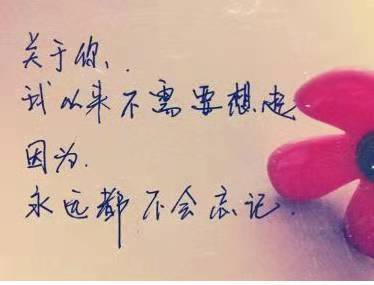 关于你..
我从来不需要想起
因为.
永远都不会忘记.